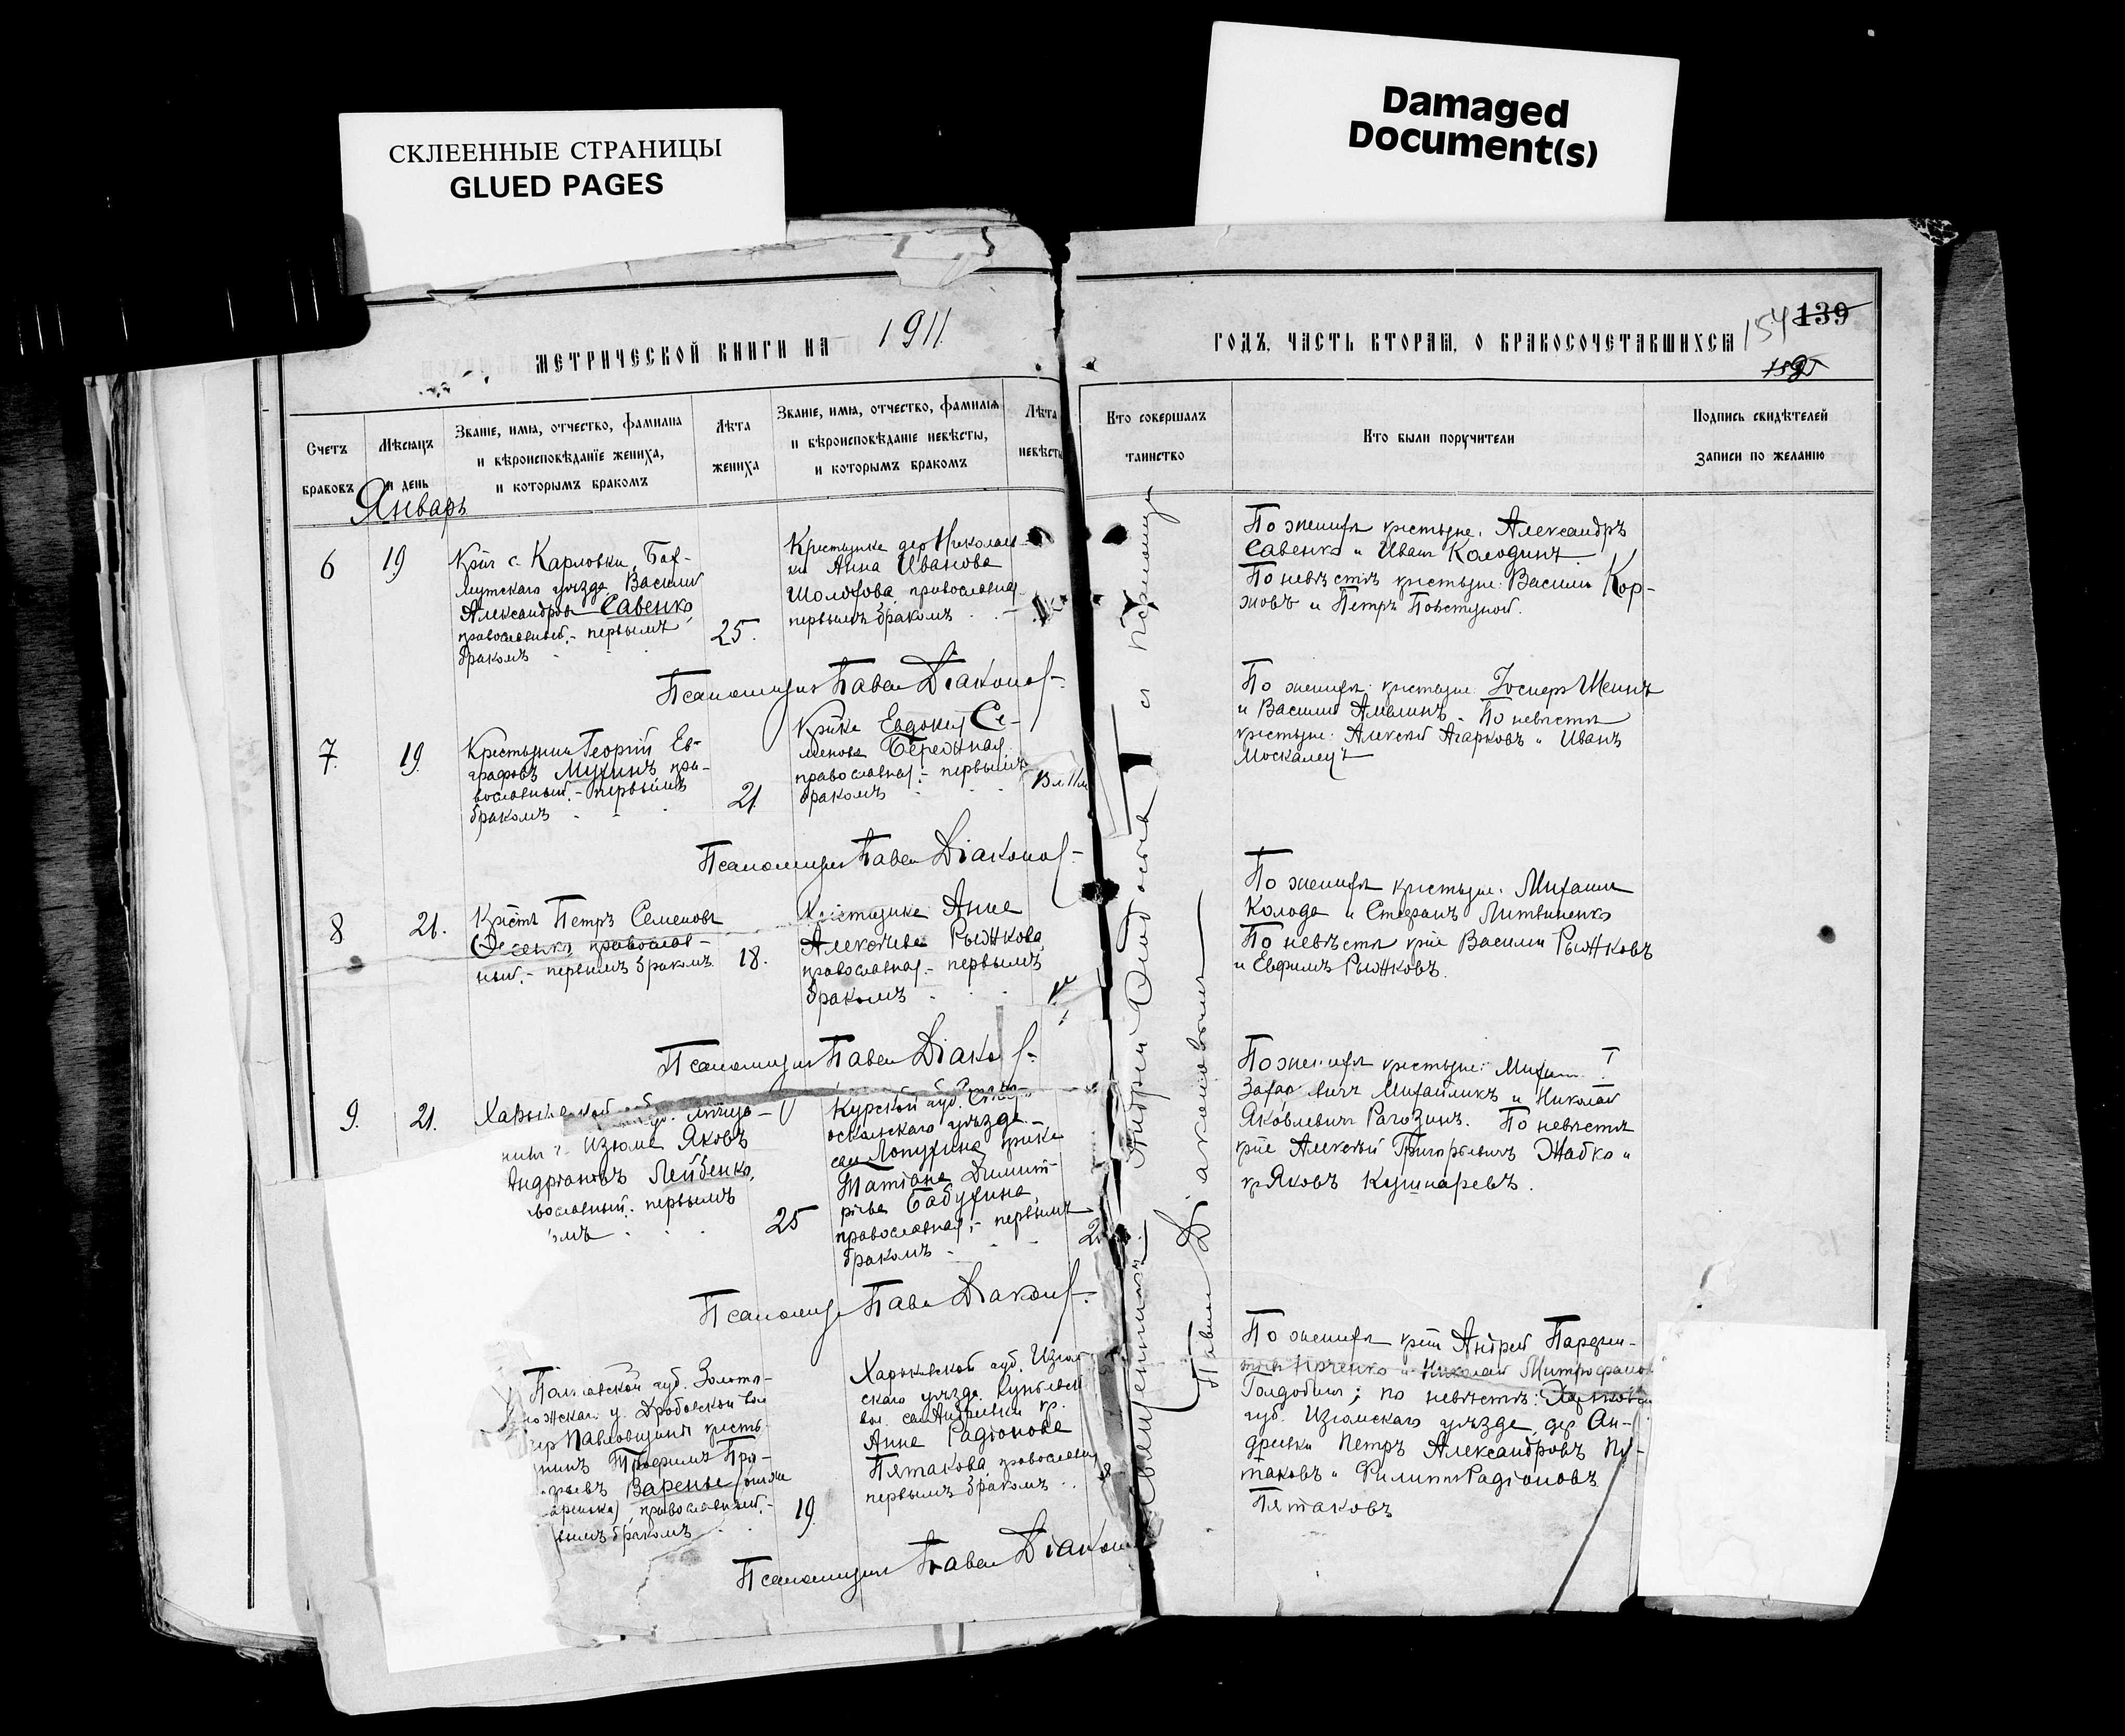 СКЛЕЕННЫЕ СТРАНИЦЫ
GLUED PAGES
Damaged
Document(s)
МЕТРИЧЕСКОЙ КНИГИ НА 1911
ГОДЪ, ЧАСТЬ ВТОРАЯ, О БРАКОСОЧЕТАВШИХСЯ
154 139
Счетъ
браковъ
Мѣсяцъ
и день
Званіе, имя, отчество, фамилія
и вѣроисповѣданіе жениха,
и которымъ бракомъ
Лѣта
жениха
Званіе, имя, отчество, фамилія
и вѣроисповѣданіе невѣсты,
и которымъ бракомъ
Лѣта
невѣсты
Кто совершалъ
таинство
Кто были поручители
Подпись свидѣтелей
записи по желанію
Январь
6
19
с. Карловки, Бах-
мутскаго уѣзда Василій
Александровъ Савенко,
православный, - первымъ
бракомъ
25.
Крестьянка дер Николаев-
ки Анна Иванова
Шолохова православная
первымъ бракомъ
По женихѣ крестьяне: Александръ
Савенко и Иванъ Колодинъ.
По невѣстѣ крестьяне: Василій Кор-
жовъ и Петръ Повстяной.
Псаломщикъ Павелъ Діаконов
7.
19.
Крестьянинъ Георгій Ев-
графовъ Мухинъ, пра-
вославный, - первымъ
бракомъ
21.
Евдокія Се-
менова Бережная
православная, - первымъ
бракомъ
По женихѣ: крестьяне: Іосифъ Шеинъ
и Василій Амелинъ. По невѣстѣ
крестьяне: Алексѣй Агарковъ и Иванъ
Москалецъ
Псаломщикъ Павелъ Діаконов
8
21.
Петръ Семеновъ
православ-
ный, - первымъ бракомъ
18.
Крестьянка Анна
Алексѣева Рыжкова,
православная, - первымъ
бракомъ
По женихѣ крестьяне: Михаилъ
Колода и Стефанъ Литвиненко
По невѣстѣ Василій Рыжковъ
и Евфимъ Рыжковъ.
Псаломщикъ Павелъ Діаконов
9.
21.
Харьковской
Изюма Яковъ
Андріановъ Лейбенко,
вославный, первымъ
омъ
25
Курской губ.
оскольскаго уѣзда
Лопухина
Татіана Димит-
ріева Бабухина,
православная, - первымъ
бракомъ
По женихѣ крестьяне:
Михайликъ и Николай
Яковлевичъ Рагозинъ. По невѣстѣ
Алексѣй Григорьевичъ Жабко и
Яковъ Кушнаревъ.
Псаломщикъ Павелъ Діаконов
Полтавской губ. Золото-
ножскаго у. Дробовской вол
Павловщины кресть-
янинъ Трофимъ Гри-
горьевъ Варенье
православный,
вымъ бракомъ
19.
Харьковской губ. Изюм
скаго уѣзда
вол. Андреевки кр.
Анна Радіонова
Пятакова, православная,
первымъ бракомъ
По женихѣ Андрей Парфен-
и Николай Митрофанов
Голдобинъ; по невѣстѣ: Харьковской
губ. Изюмскаго уѣзда, дер Ан-
дреевки Петръ Александровъ Пя-
таковъ и Филиппъ Радіоновъ
Пятаковъ
Псаломщикъ Павелъ Діаконов
Священникъ Андрей
Павелъ Діаконовымъ